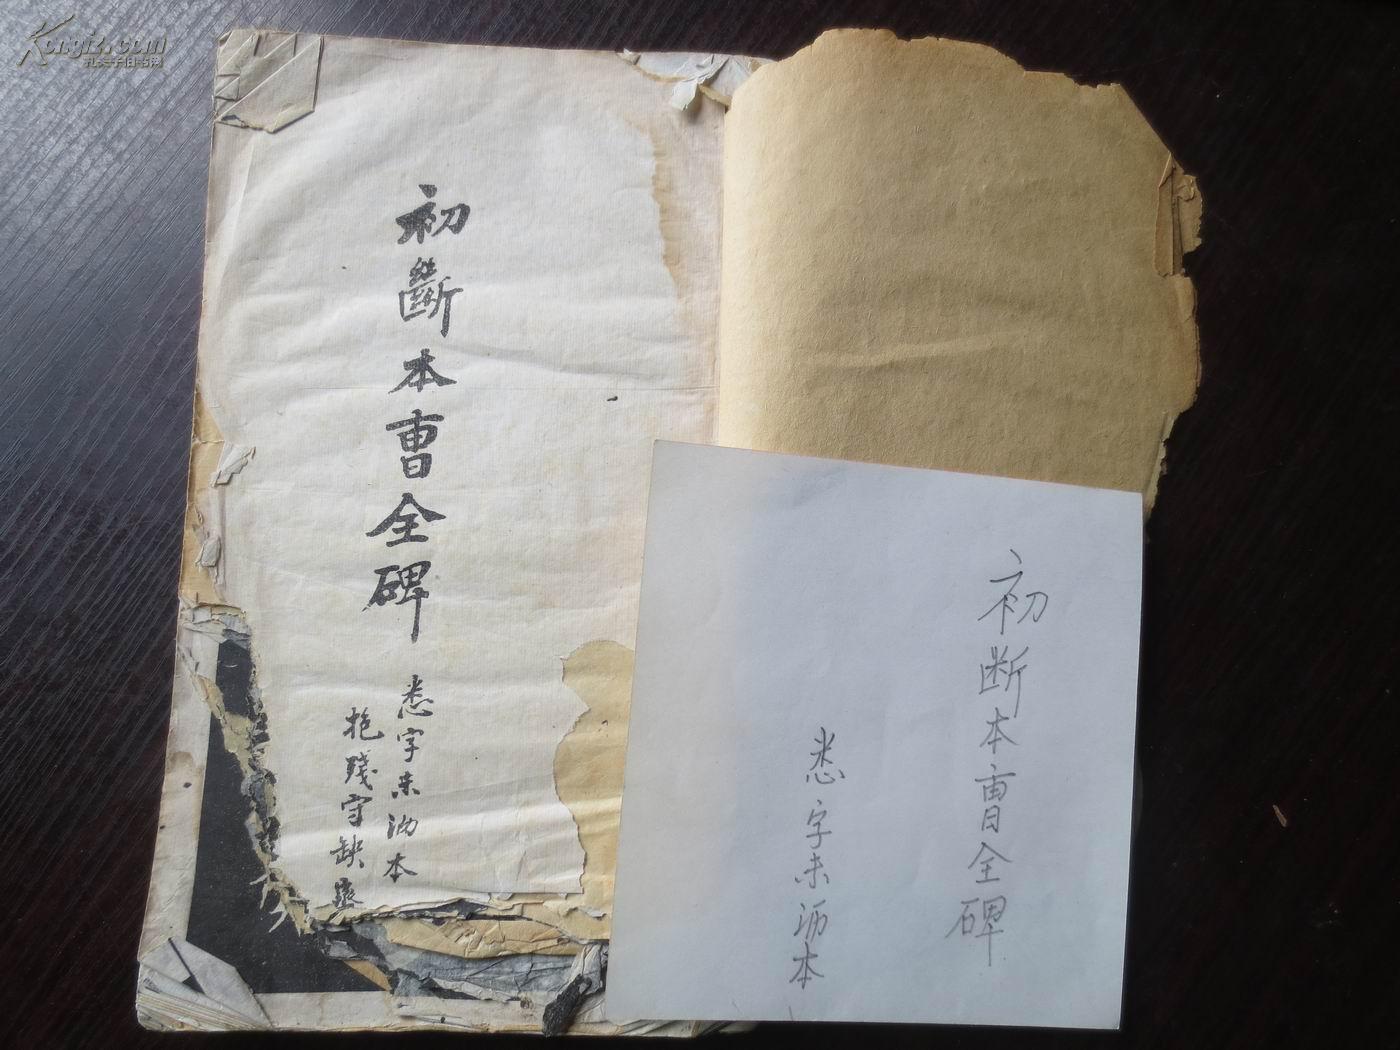 Kongfz.com
孔夫子旧书网
初斷本曹全碑
悉字未泐本
抱殘守缺
初断本曺全碑
悉字未泐本